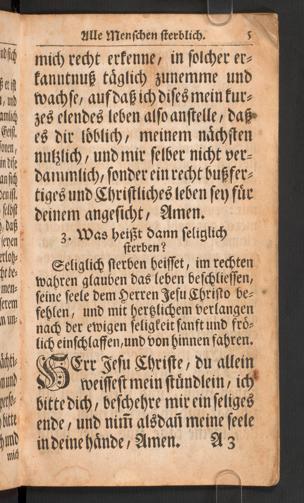 Alle Menschen sterblich. 5
mich recht erkenne, in solcher er-
kanntnuß täglich zunemme und
wachse, auf daß ich dises mein kur-
zes elendes leben also anstelle, daß
es dir löblich, meinem nächsten
nutzlich, und mir selber nicht ver-
dammlich, sonder ein recht bußfer-
tiges und Christliches leben sey für
deinem angesicht, Amen.
3. Was heißt dann seliglich
sterben?
Seliglich sterben heisset, im rechten
wahren glauben das leben beschliessen,
seine seele dem Herren Jesu Christo be-
fehlen, und mit hertzlichem verlangen
nach der ewigen seligkeit sanft und frö-
lich einschlaffen, und von hinnen fahren.
HErr Jesu Christe, du allein
weissest mein stündlein, ich
bitte dich, beschehre mir ein seliges
ende, und nim̃ alsdañ meine seele
in deine hände, Amen. A 3
mich